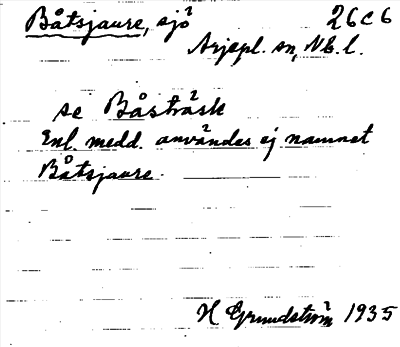 Båtsjaure, sjö 26C6
Arjepl. sn, Nb. l.
se Båsträsk
Enl. medd. användes ej namnet
Båtsjaure.
H Grundström 1935